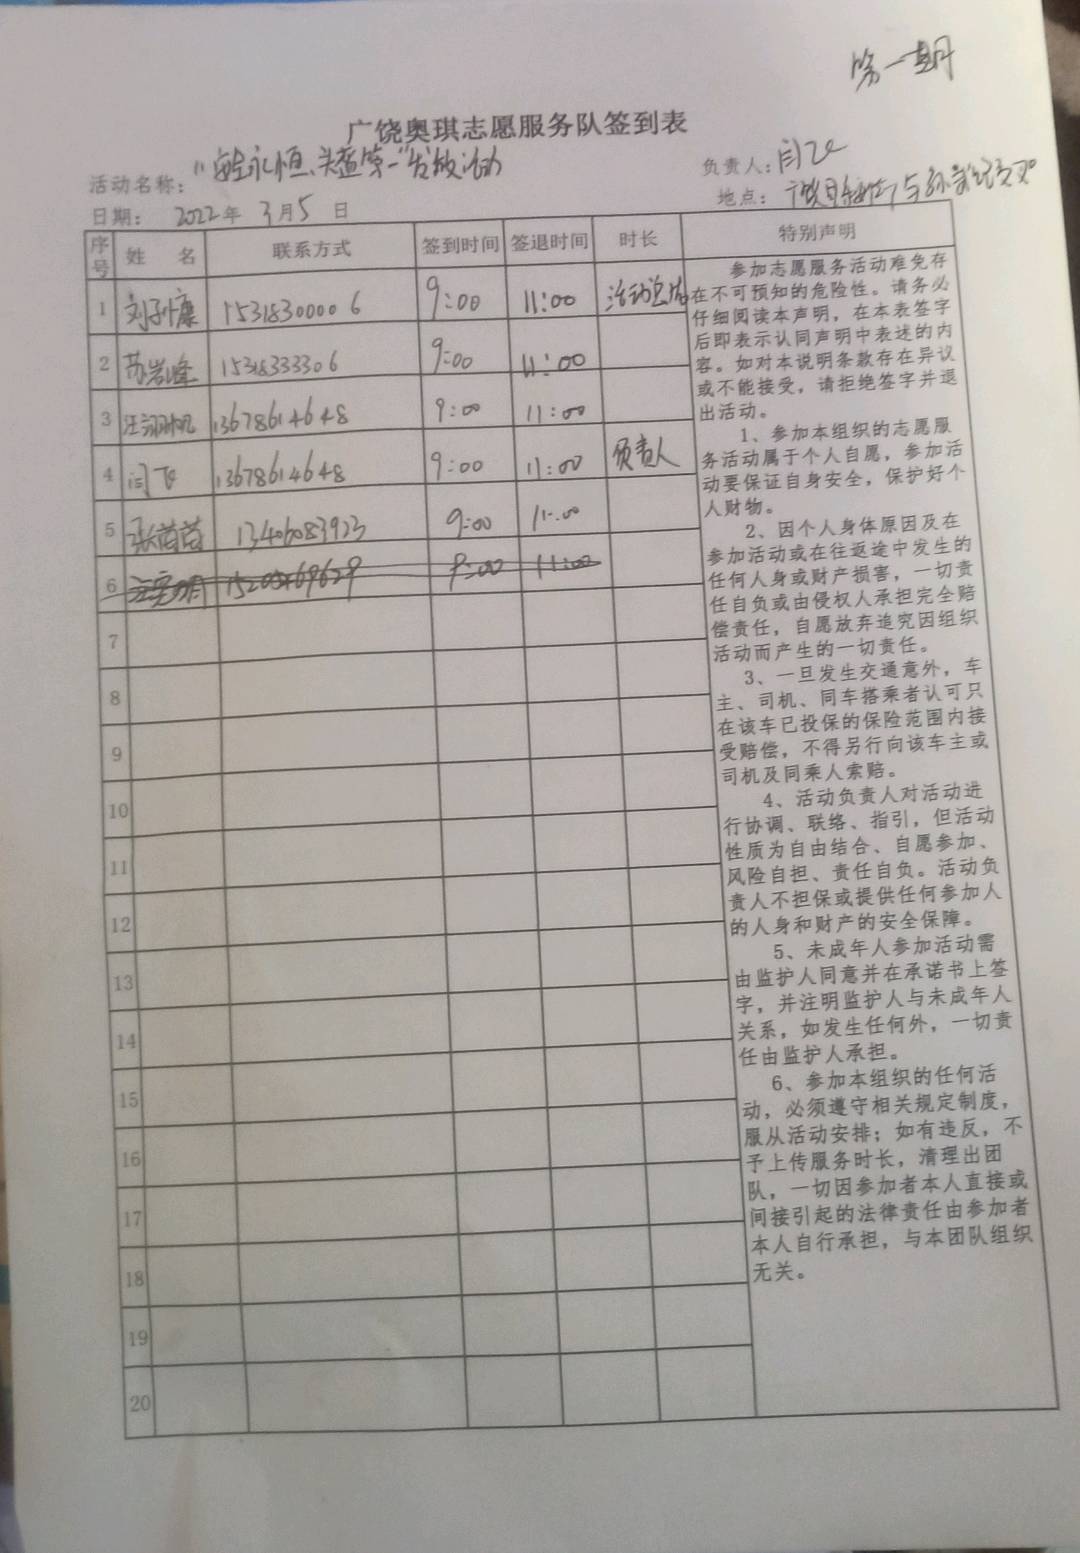 第一期
广饶奥琪志愿服务队签到表
活动名称："安全永恒、头盔第一"发放活动
负责人：闫飞
日期： 2022年 3月5日
地点：
序号 姓 名 联系方式 签到时间 签退时间 时长 特别声明
1 刘子康 15318300006 9:00 11:00 活动总
2 苏岩峰 15318333306 9:00 11:00
3 汪 13678614648 9:00 11:00
4 闫飞 13678614648 9:00 11:00 负责人
5 张苗苗 13406083923 9:00 11:00
6 9:00 11:00
7
8
9
10
11
12
13
14
15
16
17
18
19
20
参加志愿服务活动难免存
在不可预知的危险性。请务必
仔细阅读本声明，在本表签字
后即表示认同声明中表述的内
容。如对本说明条款存在异议
或不能接受，请拒绝签字并退
出活动。
1、参加本组织的志愿服
务活动属于个人自愿，参加活
动要保证自身安全，保护好个
人财物。
2、因个人身体原因及在
参加活动或在往返途中发生的
任何人身或财产损害，一切责
任自负或由侵权人承担完全赔
偿责任，自愿放弃追究因组织
活动而产生的一切责任。
3、一旦发生交通意外，车
主、司机、同车搭乘者认可只
在该车已投保的保险范围内接
受赔偿，不得另行向该车主或
司机及同乘人索赔。
4、活动负责人对活动进
行协调、联络、指引，但活动
性质为自由结合、自愿参加、
风险自担、责任自负。活动负
责人不担保或提供任何参加人
的人身和财产的安全保障。
5、未成年人参加活动需
由监护人同意并在承诺书上签
字，并注明监护人与未成年人
关系，如发生任何外，一切责
任由监护人承担。
6、参加本组织的任何活
动，必须遵守相关规定制度，
服从活动安排；如有违反，不
予上传服务时长，清理出团
队，一切因参加者本人直接或
间接引起的法律责任由参加者
本人自行承担，与本团队组织
无关。